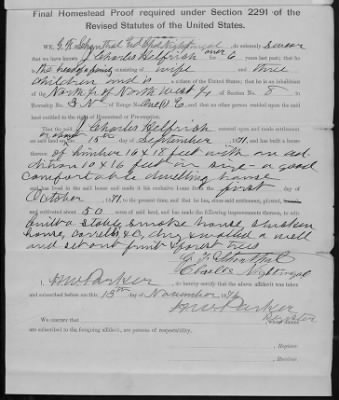 Final Homestead Proof required under Section 2291 of the
Revised Statutes of the United States.
WE, and Chas Nightingal, do solemnly swear
that we have known J Charles Helfrich over 6 years last past; that he
is the head of a family consisting of wife and three
children and is a citizen of the United States; that he is an inhabitant
of the North ½ of North West ¼ of Section No. 8 in
Township No. 3 N of Range No. One (1) E, and that no other person resided upon the said
land entitled to the right of Homestead or Pre-emption.
That the said J Charles Helfrich entered upon and made settlement
on said land on or about the 15 day of September, 1871, and has built a house
thereon of lumber 16 x 18 feet with an ad
dition 10 x 16 feet in size a good
comfortable dwelling house
and has lived in the said house and made it his exclusive home from the first day of
October, 1871, to the present time, and that he has, since said settlement, planted,
and cultivated about 50 acres of said land, and has made the following improvements thereon, to wit:
built a stable smoke house chicken
house, corrals &c, dug & walled a well
and set out fruit & forest trees
Charles Nightingal
I, M W Parker, do hereby certify that the above affidavit was taken
and subscribed before me this 13th day of November 1876
M W Parker
Register
WE CERTIFY that
are subscribed to the foregoing affidavit, are persons of respectability.
, Register.
, Receiver.